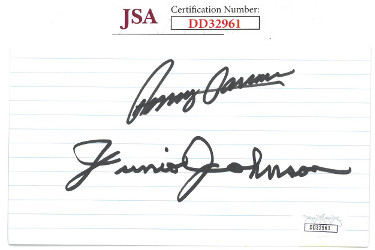 JSA Certification Number:
DD32961
Junior Johnson
DD32961